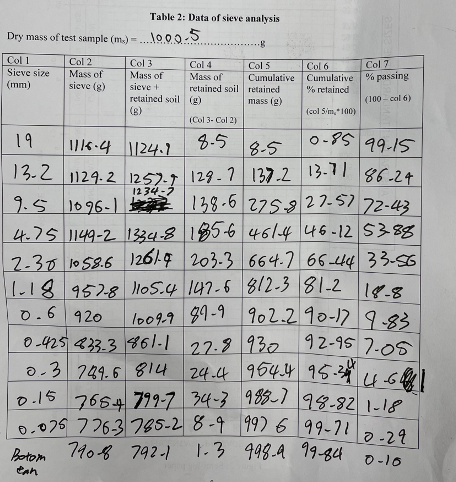 Table 2: Data of sieve analysis
Dry mass of test sample (mₛ) = ....1000.5....g
Col 1 Col 2 Col 3 Col 4 Col 5 Col 6 Col 7
Sieve size (mm) Mass of sieve (g) Mass of sieve + retained soil (g) Mass of retained soil (g) (Col 3- Col 2) Cumulative retained mass (g) Cumulative % retained (col 5/mₛ*100) % passing (100 – col 6)
19 1116.4 1124.9 8.5 8.5 0.85 99.15
13.2 1129.2 1257.9 128.7 137.2 13.71 86.29
9.5 1096.1 1234.7 138.6 275.8 27.57 72.43
4.75 1149.2 1334.8 185.6 461.4 46.12 53.88
2.36 1058.6 1261.9 203.3 664.7 66.44 33.56
1.18 957.8 1105.4 147.6 812.3 81.2 18.8
0.6 920 1009.9 89.9 902.2 90.17 9.83
0.425 833.3 861.1 27.8 930 92.95 7.05
0.3 789.6 814 24.4 954.4 95.39 4.61
0.15 765.4 799.7 34.3 988.7 98.82 1.18
0.075 776.3 785.2 8.9 997.6 99.71 0.29
Botom Pan 790.8 792.1 1.3 998.9 99.84 0.16